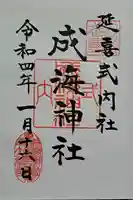 延喜式内社
成海神社
令和四年一月十六日